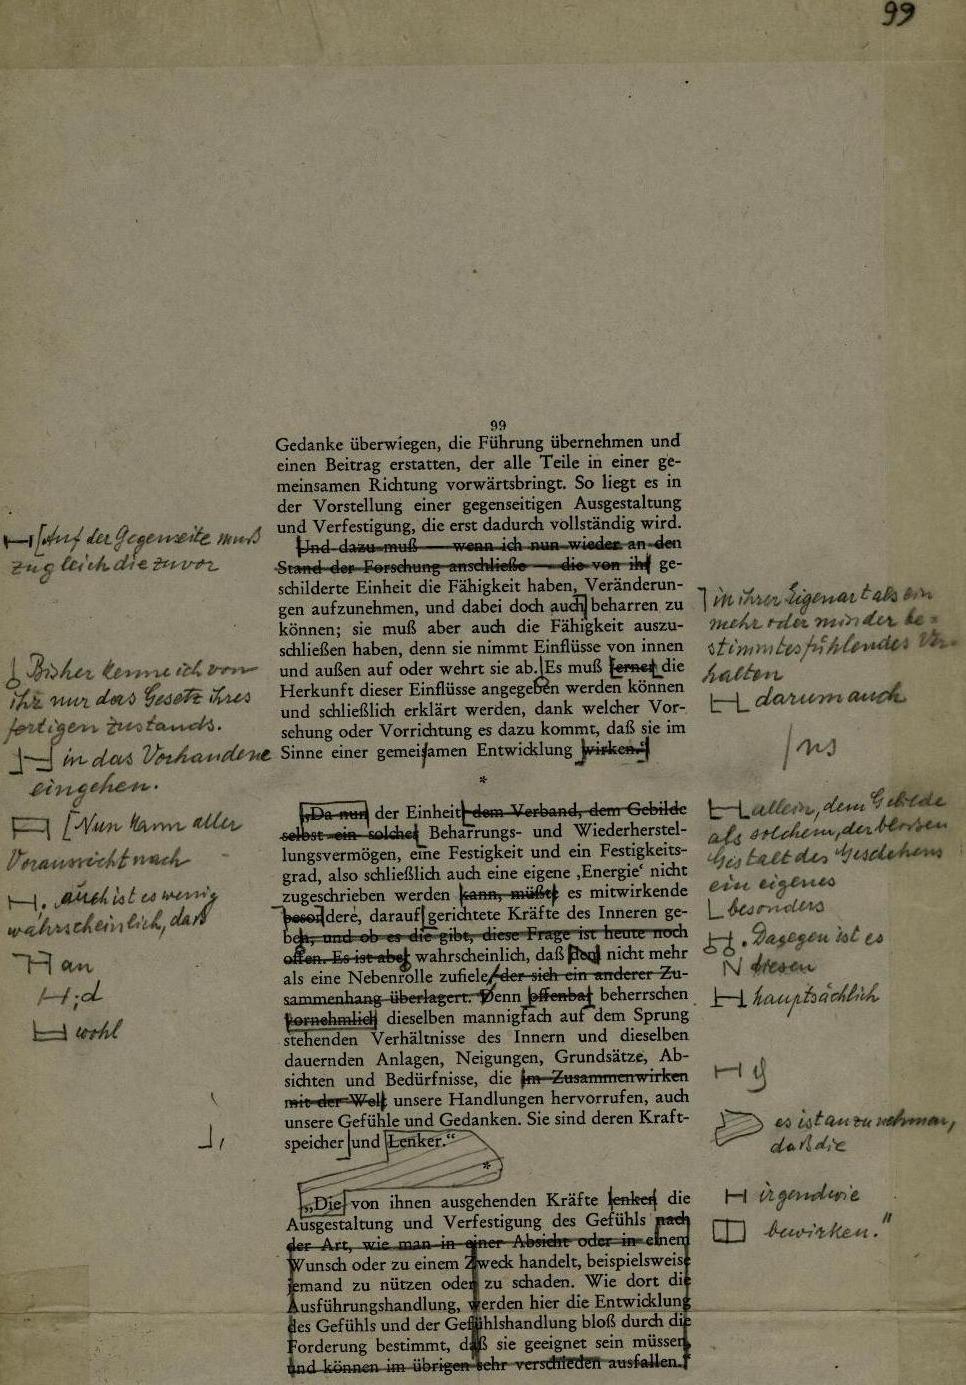 99
99
Gedanke überwiegen, die Führung übernehmen und
einen Beitrag erstatten, der alle Teile in einer ge-
meinsamen Richtung vorwärtsbringt. So liegt es in
der Vorstellung einer gegenseitigen Ausgestaltung
und Verfestigung, die erst dadurch vollständig wird.
Und dazu muß — wenn ich nun wieder an den
Stand der Forschung anschließe — die von ihr ge-
schilderte Einheit die Fähigkeit haben, Veränderun-
gen aufzunehmen, und dabei doch auch beharren zu
können; sie muß aber auch die Fähigkeit auszu-
schließen haben, denn sie nimmt Einflüsse von innen
und außen auf oder wehrt sie ab. Es muß ferner die
Herkunft dieser Einflüsse angegeben werden können
und schließlich erklärt werden, dank welcher Vor-
sehung oder Vorrichtung es dazu kommt, daß sie im
Sinne einer gemeisamen Entwicklung wirken.“
*
„Da nun der Einheit, dem Verband, dem Gebilde
selbst ein solches Beharrungs- und Wiederherstel-
lungsvermögen, eine Festigkeit und ein Festigkeits-
grad, also schließlich auch eine eigene ‚Energie‘ nicht
zugeschrieben werden kann, müßte es mitwirkende
besondere, darauf gerichtete Kräfte des Inneren ge-
ben; und ob es die gibt, diese Frage ist heute noch
offen. Es ist aber wahrscheinlich, daß nicht mehr
als eine Nebenrolle zufiele, der sich ein anderer Zu-
sammenhang überlagert. Denn offenbar beherrschen
vornehmlich dieselben mannigfach auf dem Sprung
stehenden Verhältnisse des Innern und dieselben
dauernden Anlagen, Neigungen, Grundsätze, Ab-
sichten und Bedürfnisse, die im Zusammenwirken
mit der Welt unsere Handlungen hervorrufen, auch
unsere Gefühle und Gedanken. Sie sind deren Kraft-
speicher und Lenker.“
*
„Die von ihnen ausgehenden Kräfte lenken die
Ausgestaltung und Verfestigung des Gefühls nach
der Art, wie man in einer Absicht oder in einem
Wunsch oder zu einem Zweck handelt, beispielsweise
jemand zu nützen oder zu schaden. Wie dort die
Ausführungshandlung, werden hier die Entwicklung
des Gefühls und der Gefühlshandlung bloß durch die
Forderung bestimmt, daß sie geeignet sein müssen,
und können im übrigen sehr verschieden ausfallen.“
[Auf der Gegenseite muß
zugleich die zuvor
Bisher kenne ich von
ihr nur das Gesetz ihres
fertigen Zustands.
in das Vorhandene
eingehen.
[Nun kann aller
Voraussicht nach
. auch ist es wenig
wahrscheinlich, daß
an
; d
wohl
,
in ihrer Eigenart als ein
mehr oder minder be=
stimmtes fühlendes Ver-
halten
darum auch
ns
allein, dem Gebilde
als solchem, der blossen
Gestalt des Geschehens
ein eigenes
besonders
. Dagegen ist es
diesen
hauptsächlich
es ist anzunehmen,
daß die
irgendwie
bewirken."